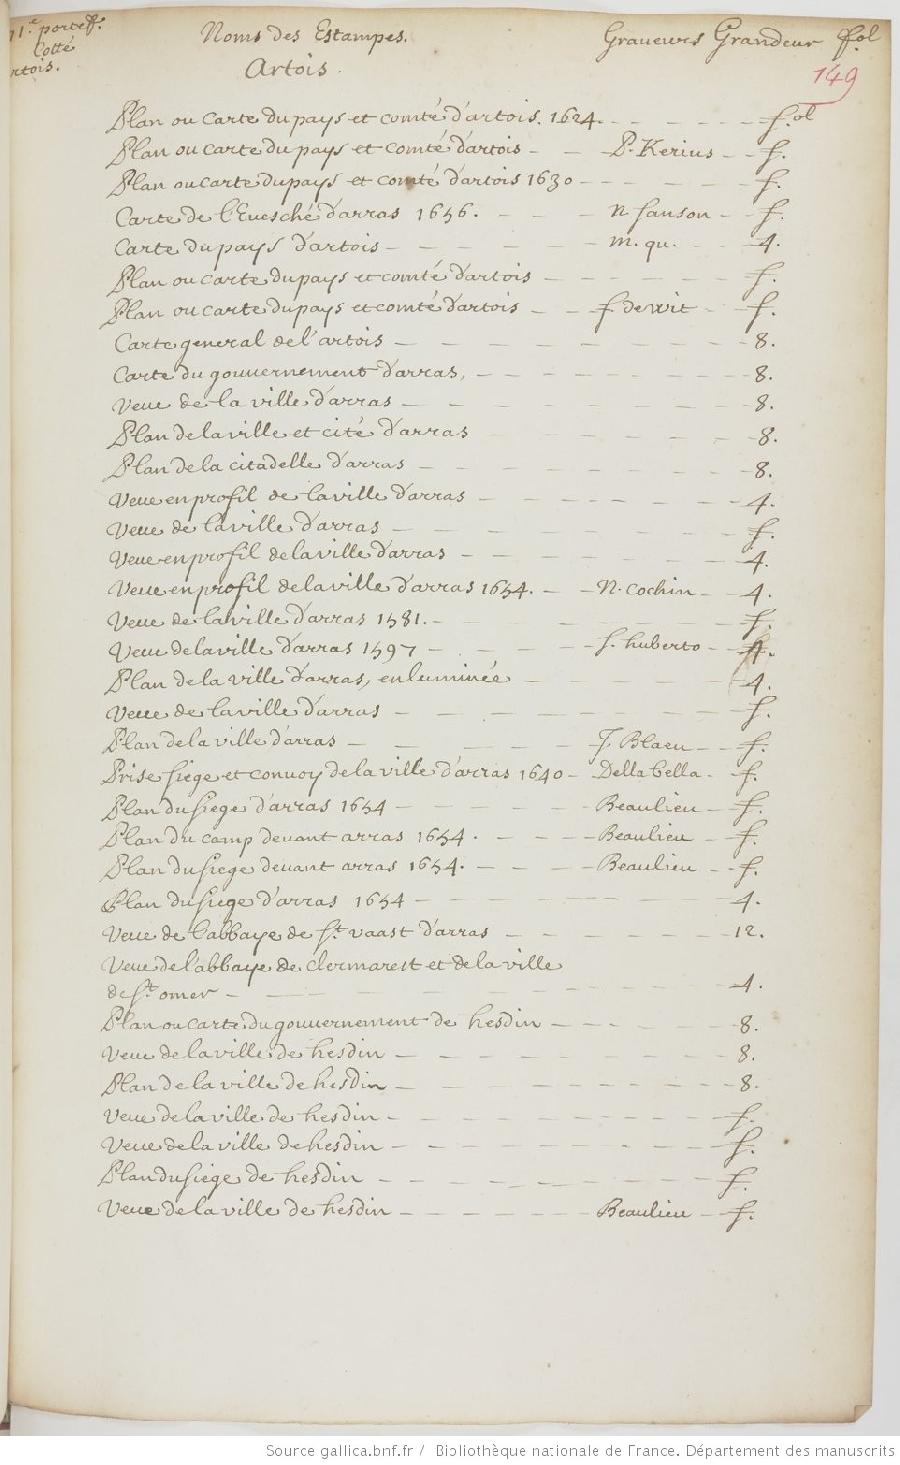 11e portef. Noms des Estampes. Graveurs Grandeur fol
Cotté
rtois. Artois. 149
Plan ou carte du pays et comté d'artois. 1624. - - - - - - f.ol
Plan ou carte du pays et comté d'artois - - P. Kerius - - f.
Plan ou carte du pays et comté d'artois 1630 - - - - - - f.
Carte de l'Euesché d'arras 1656. - - - n sanson - f.
Carte du pays d'artois - - - - - - m. qu. - - 4.
Plan ou carte du pays et comté d'artois - - - - - - f.
Plan ou carte du pays et comté d'artois - - f de wit - f.
Carte general de l'artois - - - - - - - - 8.
Carte du gouuernement d'arras, - - - - - - 8.
Veue de la ville d'arras - - - - - - - 8.
Plan de la ville et cité d'arras - - - - - 8.
Plan de la citadelle d'arras - - - - - - 8.
Veue en profil de la ville d'arras - - - - - 4.
Veue de la ville d'arras - - - - - - - f.
Veue en profil de la ville d'arras - - - - - - 4.
Veue en profil de la ville d'arras 1654. - - N. Cochin - - 4.
Veue de la ville d'arras 1581. - - - - - - f.
Veue de la ville d'arras 1597 - - - - - f. huberto - ff.
Plan de la ville d'arras, enluminée - - - - - 4.
Veue de la ville d'arras - - - - - - - f.
Plan de la ville d'arras - - - - J. Blaeu - - f.
Prise siege et conuoy de la ville d'arras 1640 - Della bella - f.
Plan du siege d'arras 1654 - - - - - Beaulieu - f.
Plan du camp deuant arras 1654. - - - Beaulieu - f.
Plan du siege deuant arras 1654. - - - Beaulieu - f.
Plan du siege d'arras 1654 - - - - - - - 4.
Veue de l'abbaye de st vaast d'arras - - - - - 12.
Veue de l'abbaye de clermarest et de la ville
de st omer - - - - - - - - 4.
Plan ou carte du gouuernement de hesdin - - - - - 8.
Veue de la ville de hesdin - - - - - - - 8.
Plan de la ville de hesdin - - - - - - - 8.
Veue de la ville de hesdin - - - - - - - f.
Veue de la ville de hesdin - - - - - - - f.
Plan du siege de hesdin - - - - - - - f.
Veue de la ville de hesdin - - - - - Beaulieu - f.
Source gallica.bnf.fr / Bibliothèque nationale de France. Département des manuscrits